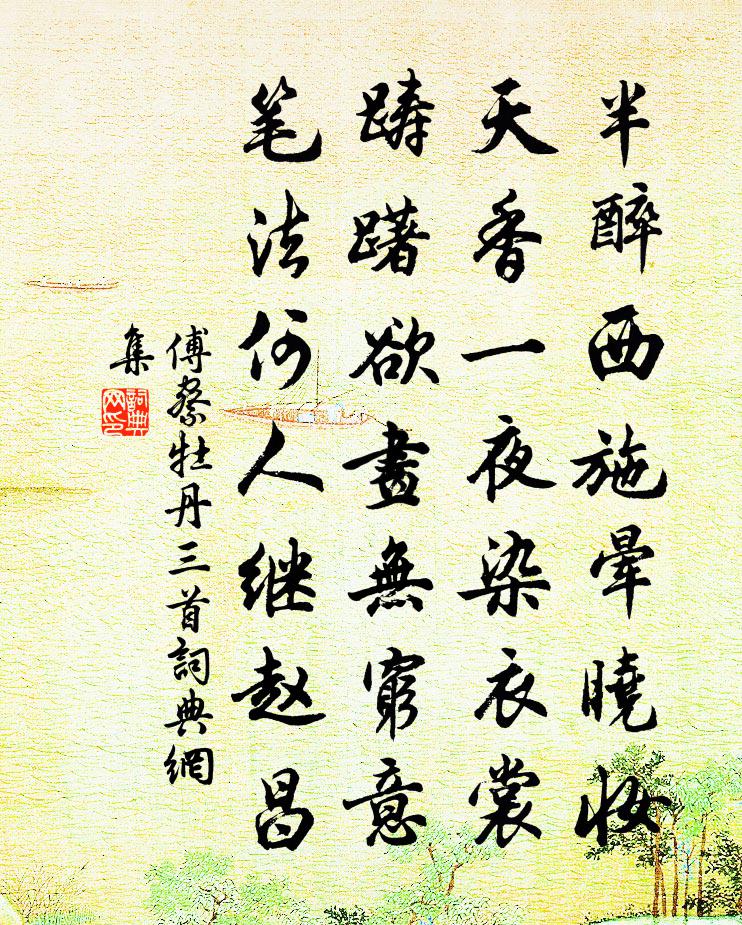 半醉西施晕曉妆
天香一夜染衣裳
踌躇欲畫無窮意
笔法何人继赵昌
傅察牡丹三首詞典網
集
詞典
网印